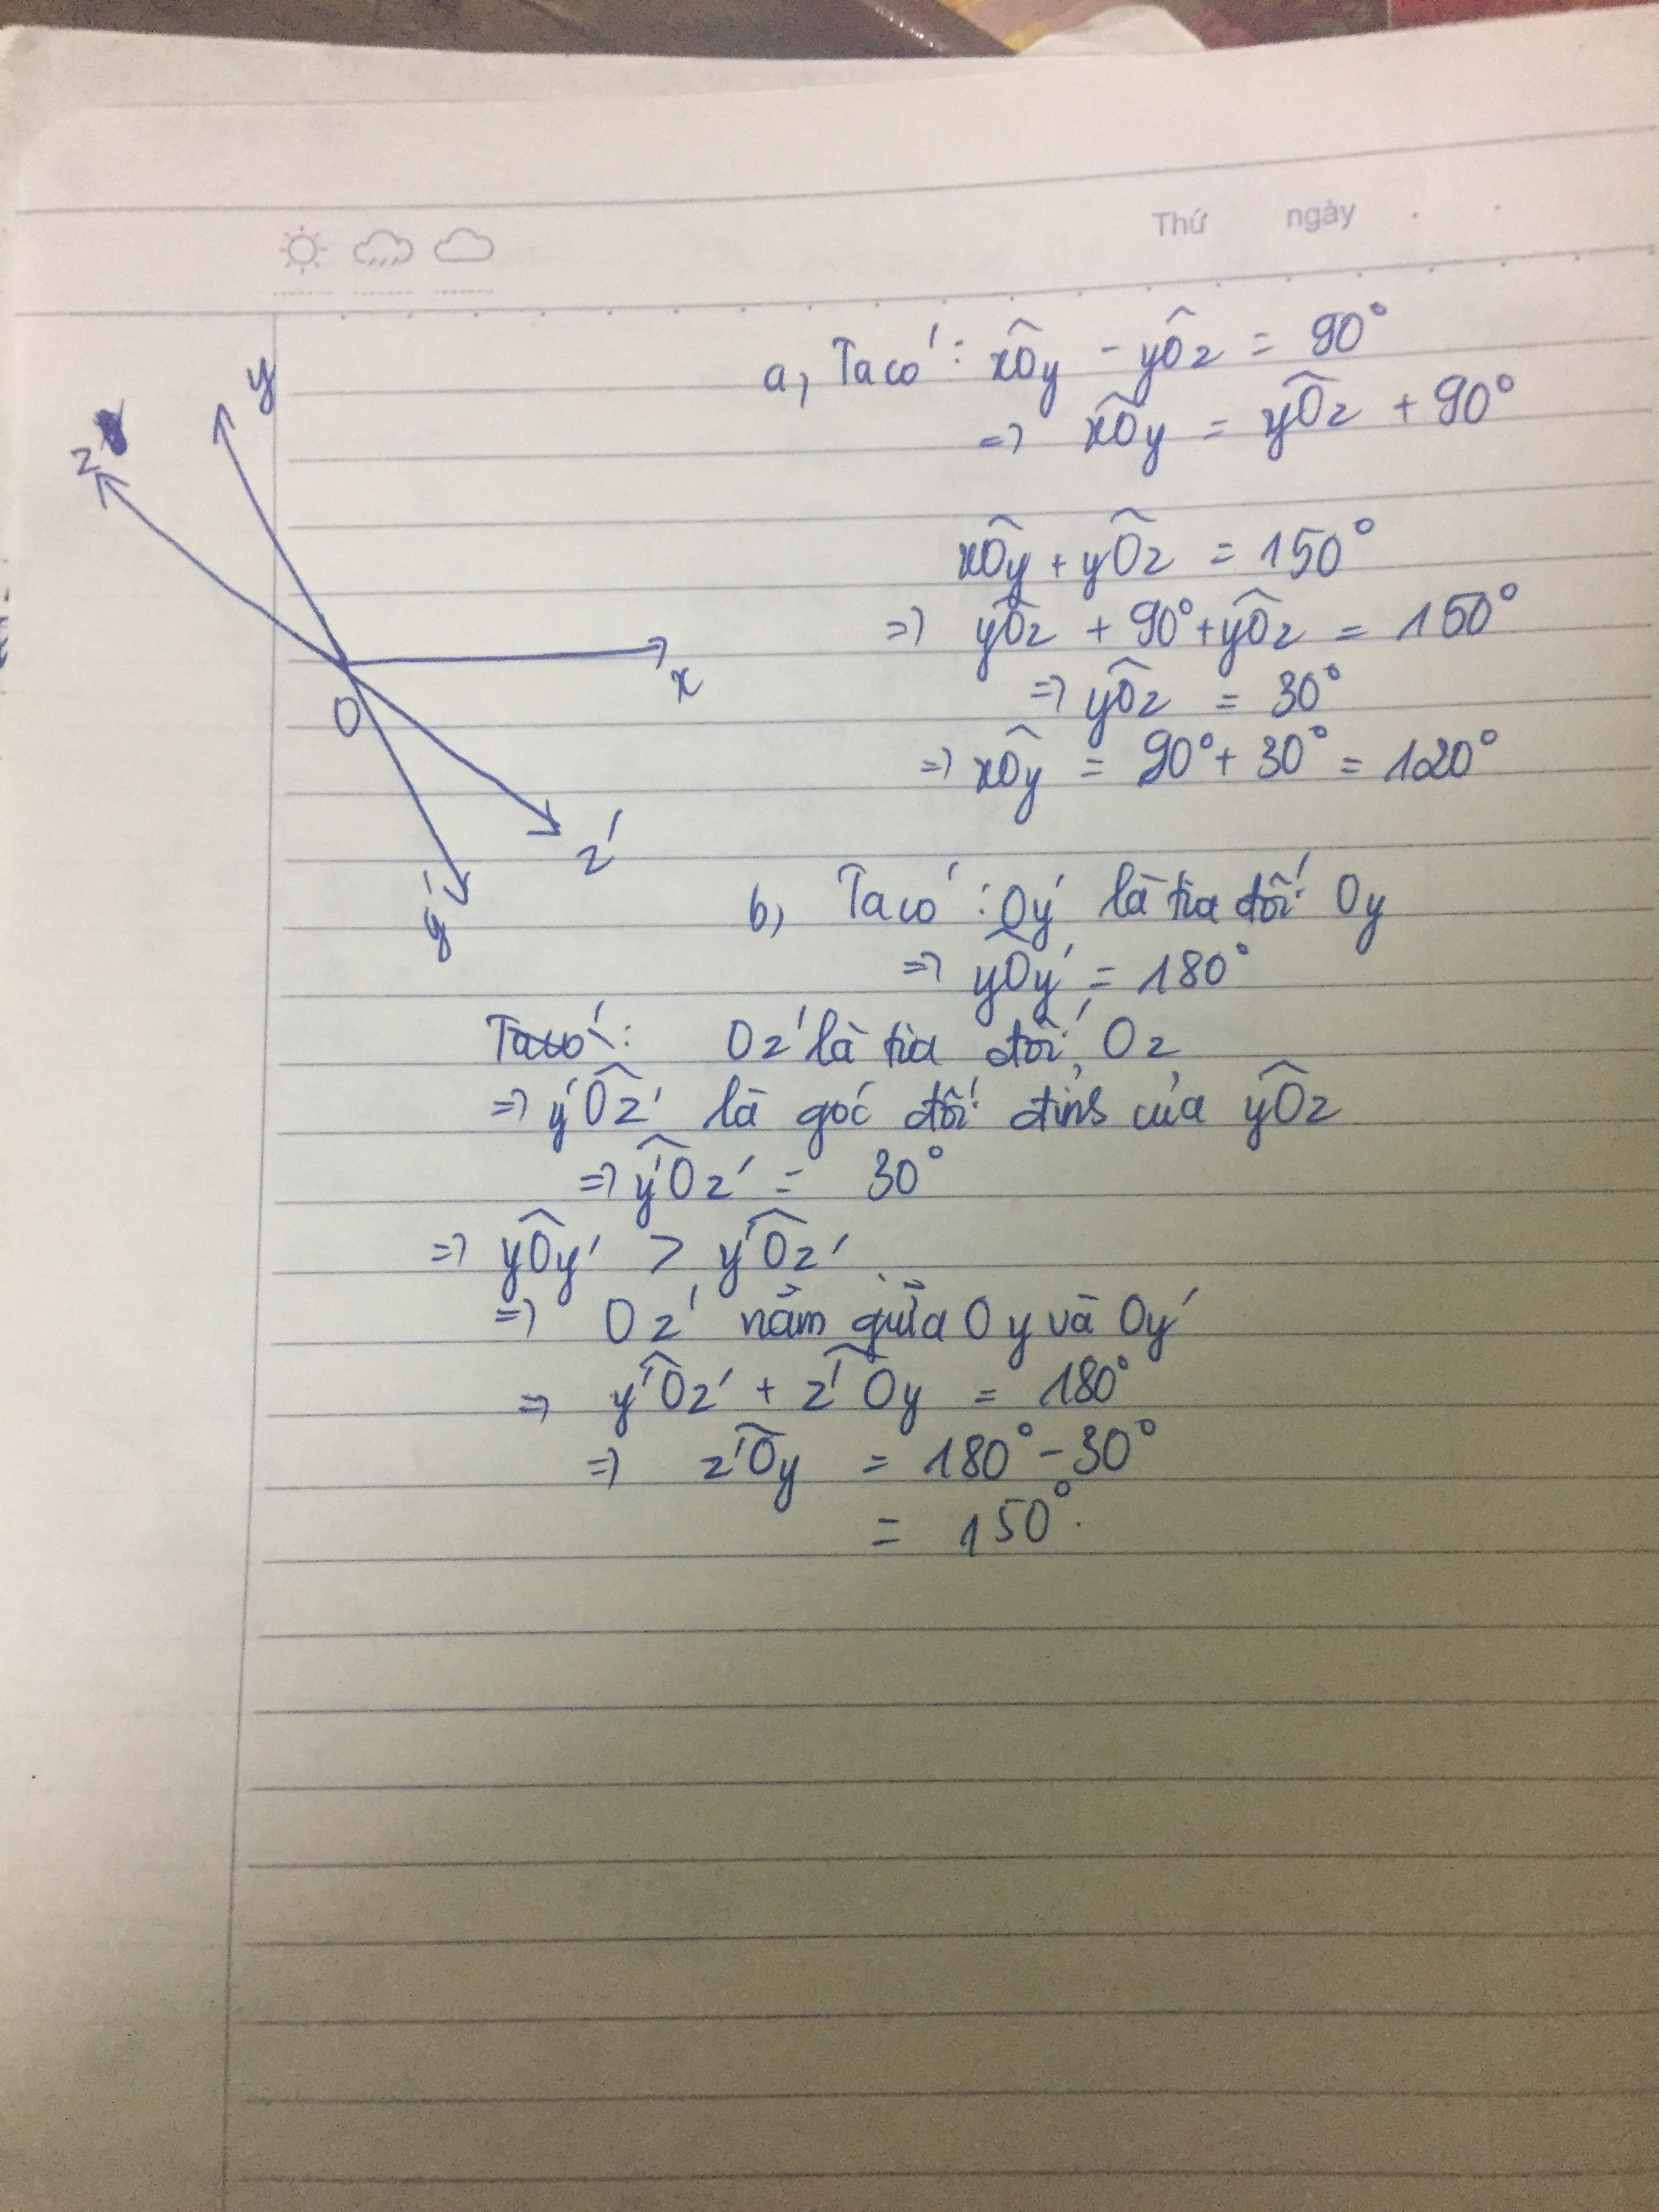 Thứ ngày
y
z
x
O
z'
y'
a, Ta có: xÔy - yÔz = 90°
=> xÔy = yÔz + 90°
xÔy + yÔz = 150°
=> yÔz + 90° + yÔz = 150°
=> yÔz = 30°
=> xÔy = 90° + 30° = 120°
b, Ta có: Oy' là tia đối Oy
=> yÔy' = 180°
Ta có: Oz' là tia đối Oz
=> y'Ôz' là góc đối đỉnh của yÔz
=> y'Ôz' = 30°
=> yÔy' > y'Ôz'
=> Oz' nằm giữa Oy và Oy'
=> y'Ôz' + z'Ôy = 180°
=> z'Ôy = 180° - 30°
= 150°.